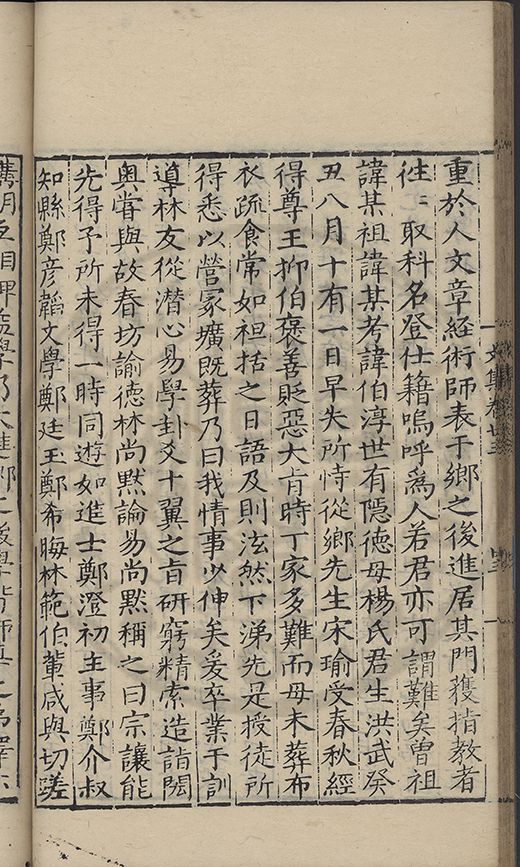 重於人文章經術師表于鄉之後進居其門獲指教者
往〻取科名登仕籍嗚呼爲人若君亦可謂難矣曾祖
諱某祖諱某考諱伯淳世有隱德母楊氏君生洪武癸
丑八月十有一日早失所恃從鄉先生宋瑜受春秋經
得尊王抑伯褒善貶惡大肯時丁家多難而母未葬布
衣疏食常如袒括之日語及則泫然下涕先是授徒所
得悉以營冡壙既葬乃曰我情事少伸矣爰卒業于訓
導林友從潛心易學卦爻十翼之肯研窮精索造詣閎
奥嘗與故春坊諭德林尚黙論易尚黙稱之曰宗讓能
先得予所未得一時同遊如進士鄭澄初主事鄭介叔
知縣鄭彦韜文學鄭廷玉鄭希晦林範伯軰咸與切蹉
文集卷廿三